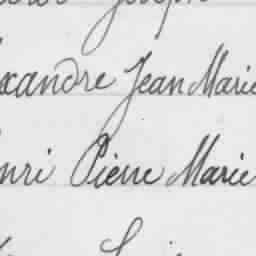 Joseph
xandre Jean Marie
nri Pierre Marie